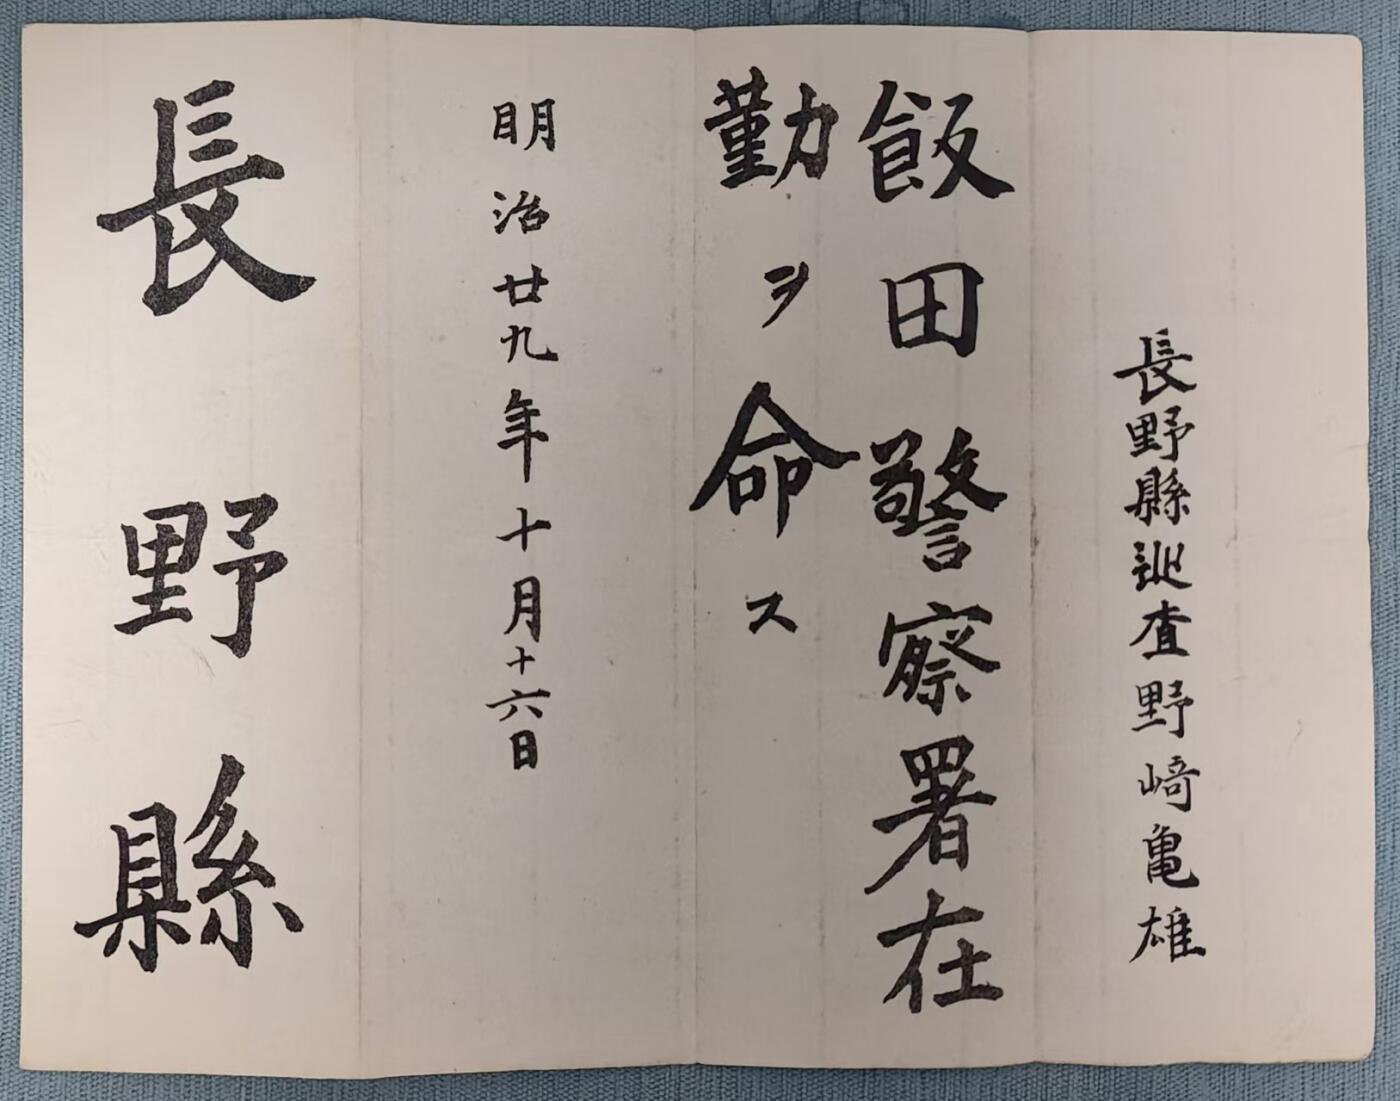 長野縣巡査野﨑亀雄
飯田警察署在
勤ヲ命ス
明治廿九年十月十六日
長野縣